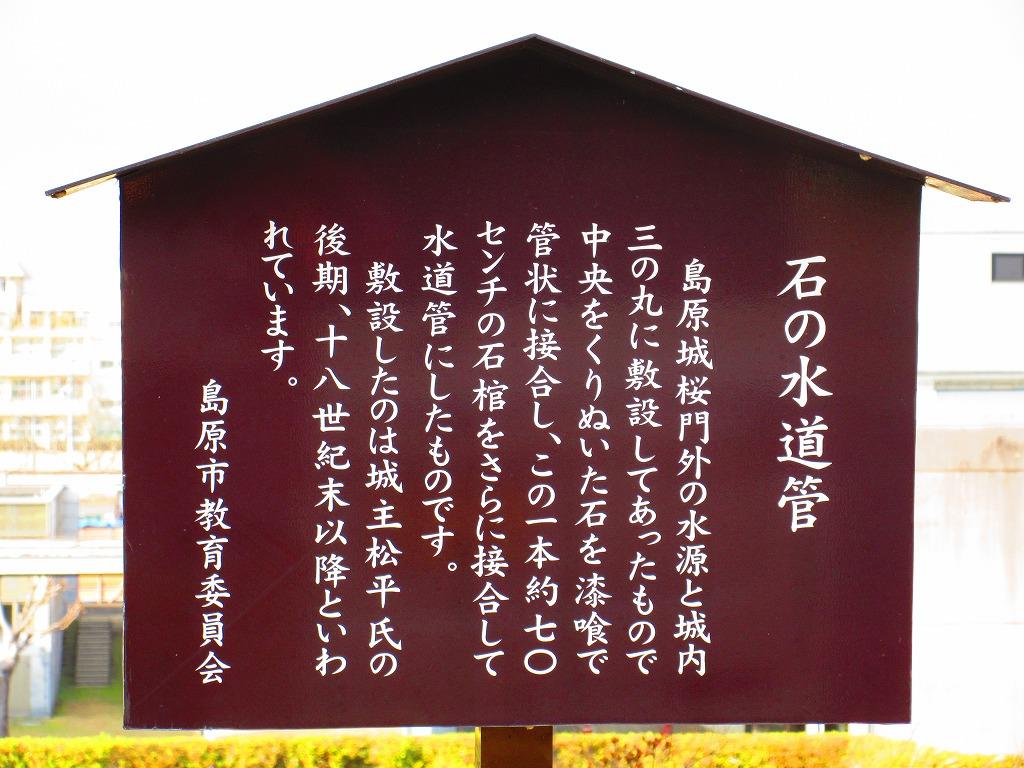 石の水道管
島原城桜門外の水源と城内
三の丸に敷設してあったもので
中央をくりぬいた石を漆喰で
管状に接合し、この一本約七〇
センチの石棺をさらに接合して
水道管にしたものです。
敷設したのは城主松平氏の
後期、十八世紀末以降といわ
れています。
島原市教育委員会